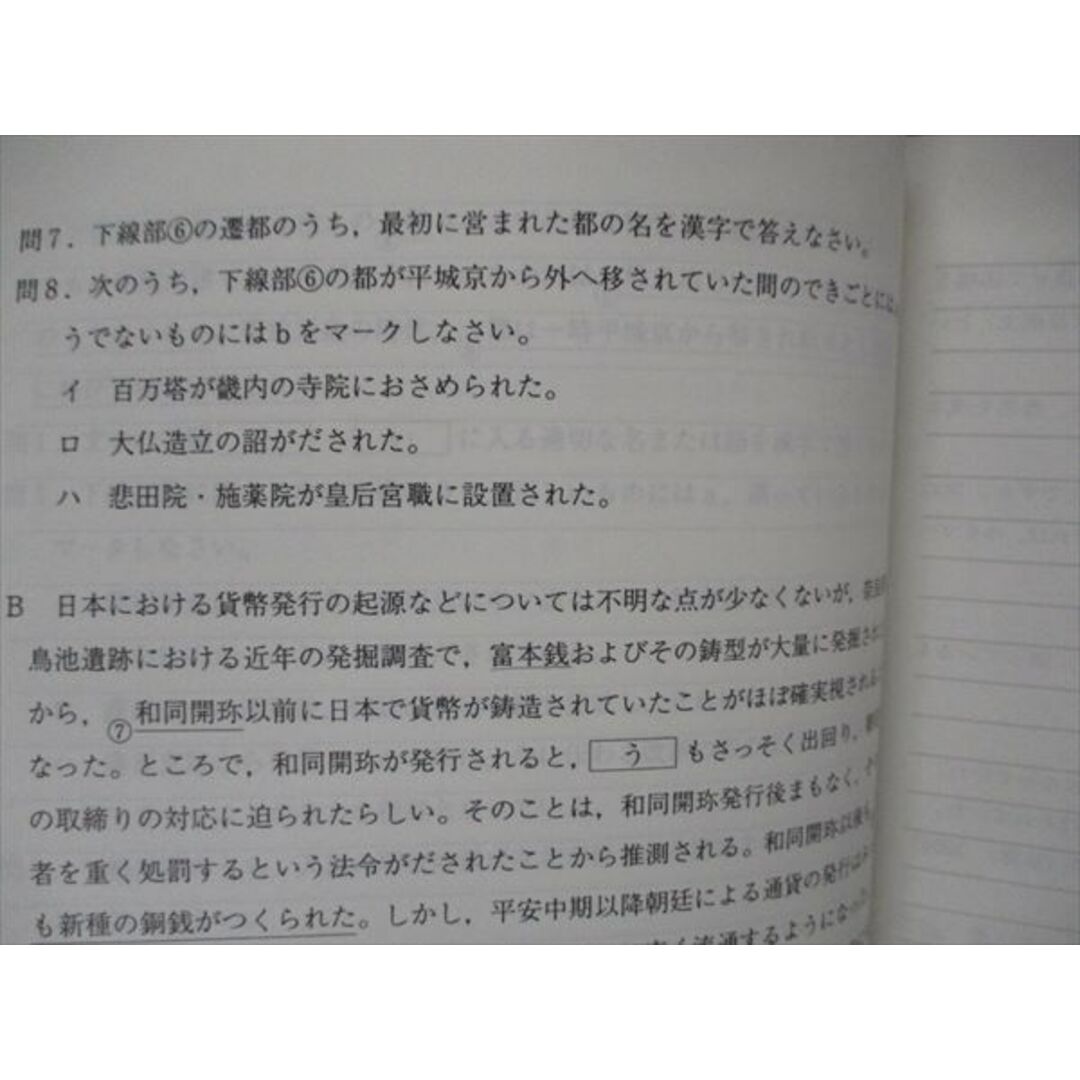 問7. 下線部⑥の遷都のうち，最初に営まれた都の名を漢字で答えなさい。
問8. 次のうち，下線部⑥の都が平城京から外へ移されていた間のできごとには
うでないものにはbをマークしなさい。
イ 百万塔が畿内の寺院におさめられた。
ロ 大仏造立の詔がだされた。
ハ 悲田院・施薬院が皇后宮職に設置された。
B 日本における貨幣発行の起源などについては不明な点が少なくないが，奈良
鳥池遺跡における近年の発掘調査で，富本銭およびその鋳型が大量に発掘され
から，⑦和同開珎以前に日本で貨幣が鋳造されていたことがほぼ確実視される
なった。ところで，和同開珎が発行されると， う もさっそく出回り，
の取締りの対応に迫られたらしい。そのことは，和同開珎発行後まもなく，
者を重く処罰するという法令がだされたことから推測される。和同開珎以後
も新種の銅銭がつくられた。しかし，平安中期以降朝廷による通貨の発行は
く流通するようになっ